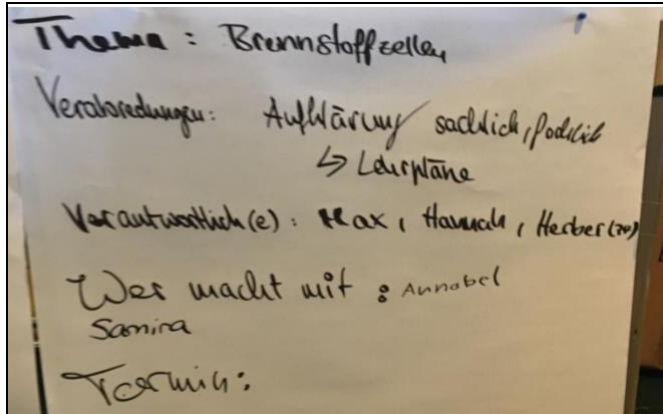 Thema : Brennstoffzellen
Verabredungen: Aufklärung sachlich,
↳ Lehrpläne
Verantwortlich(e) : Max, Hannah, Herber
Wer macht mit : Annabel
Samira
Termin: